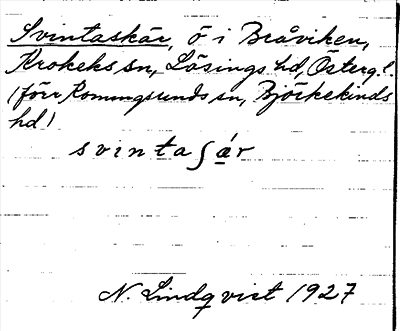 Svintaskär, ö i Bråviken,
Krokeks sn, Lösings hd, Österg.
(förr Konungsunds sn, Björkekinds
hd)
svintaʃǽr
N. Lindqvist 1927